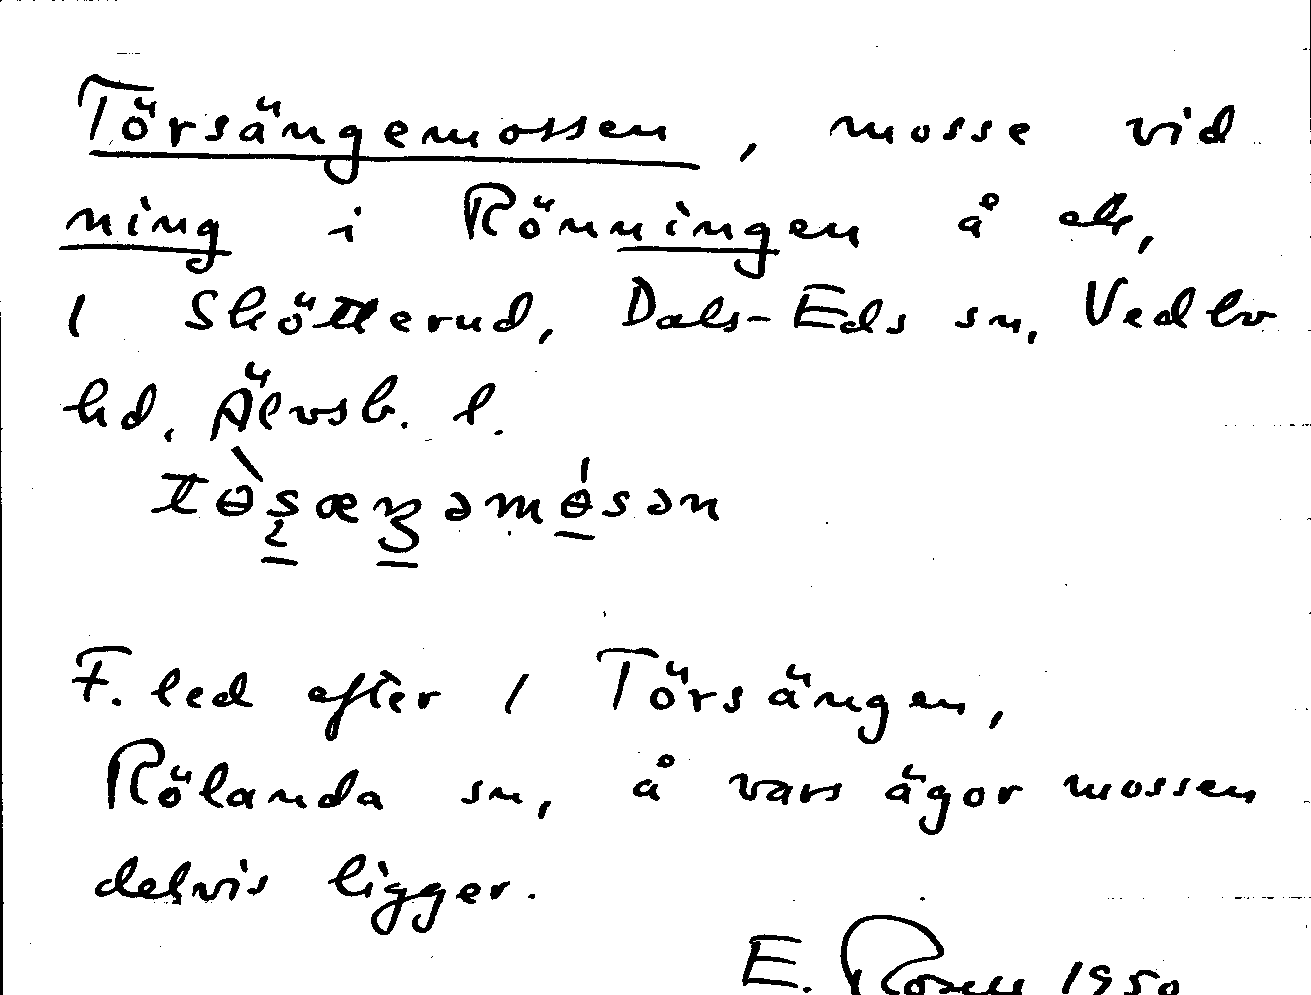 Törsängemossen, mosse vid
ning i Rönningen å ek,
1 Skötterud, Dals-Eds sn, Vedbo
hd. Älvsb. l.
F. led efter 1 Törsängen,
Rölanda sn, å vars ägor mossen
delvis ligger.
E. Rosell 1950